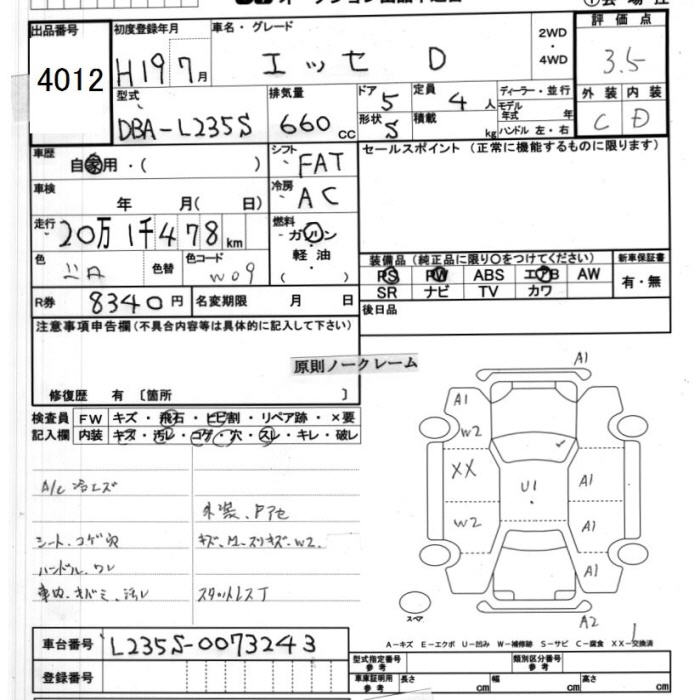 出品番号 初度登録年月 車名・グレード 2WD・4WD 評価点
4012 H19 7月 エッセ D 3.5
型式 排気量 ドア 5 定員 4人 ディーラー・並行 外装 内装
DBA-L235S 660cc 形状 S 積載 kg モデル年式 年 ハンドル 左・右 C D
車歴 自家用・( ) シフト FAT セールスポイント(正常に機能するものに限ります)
車検 年 月( 日) 冷房 AC
走行 20万1千478km 燃料 ガソリン・軽油・( )
色 色替 色コード W09 装備品(純正品に限り○をつけてください) 新車保証書
PS PW ABS エアB AW 有・無
SR ナビ TV カワ
R券 8340円 名変期限 月 日 後日品
注意事項申告欄(不具合内容等は具体的に記入して下さい)
原則ノークレーム
修復歴 有 〔箇所 〕
検査員 FW キズ・飛石・ヒビ割・リペア跡・×要
記入欄 内装 キズ・汚レ・コゲ・穴・スレ・キレ・破レ
A/C 冷エズ
外装、Pアセ
シート、コゲ穴 キズ、
ハンドル、ワレ
車内、キバミ、汚レ スタットレスT
A1
A1
W2
XX U1 A1
W2 A1
A1
スペア A2
A-キズ E-エクボ U-凹み W-補修跡 S-サビ C-腐食 XX-交換済
車台番号 L235S-0073243
型式指定番号 参考 類別区分番号 参考
登録番号 車庫証明用 参考 長さ cm 幅 cm 高さ cm